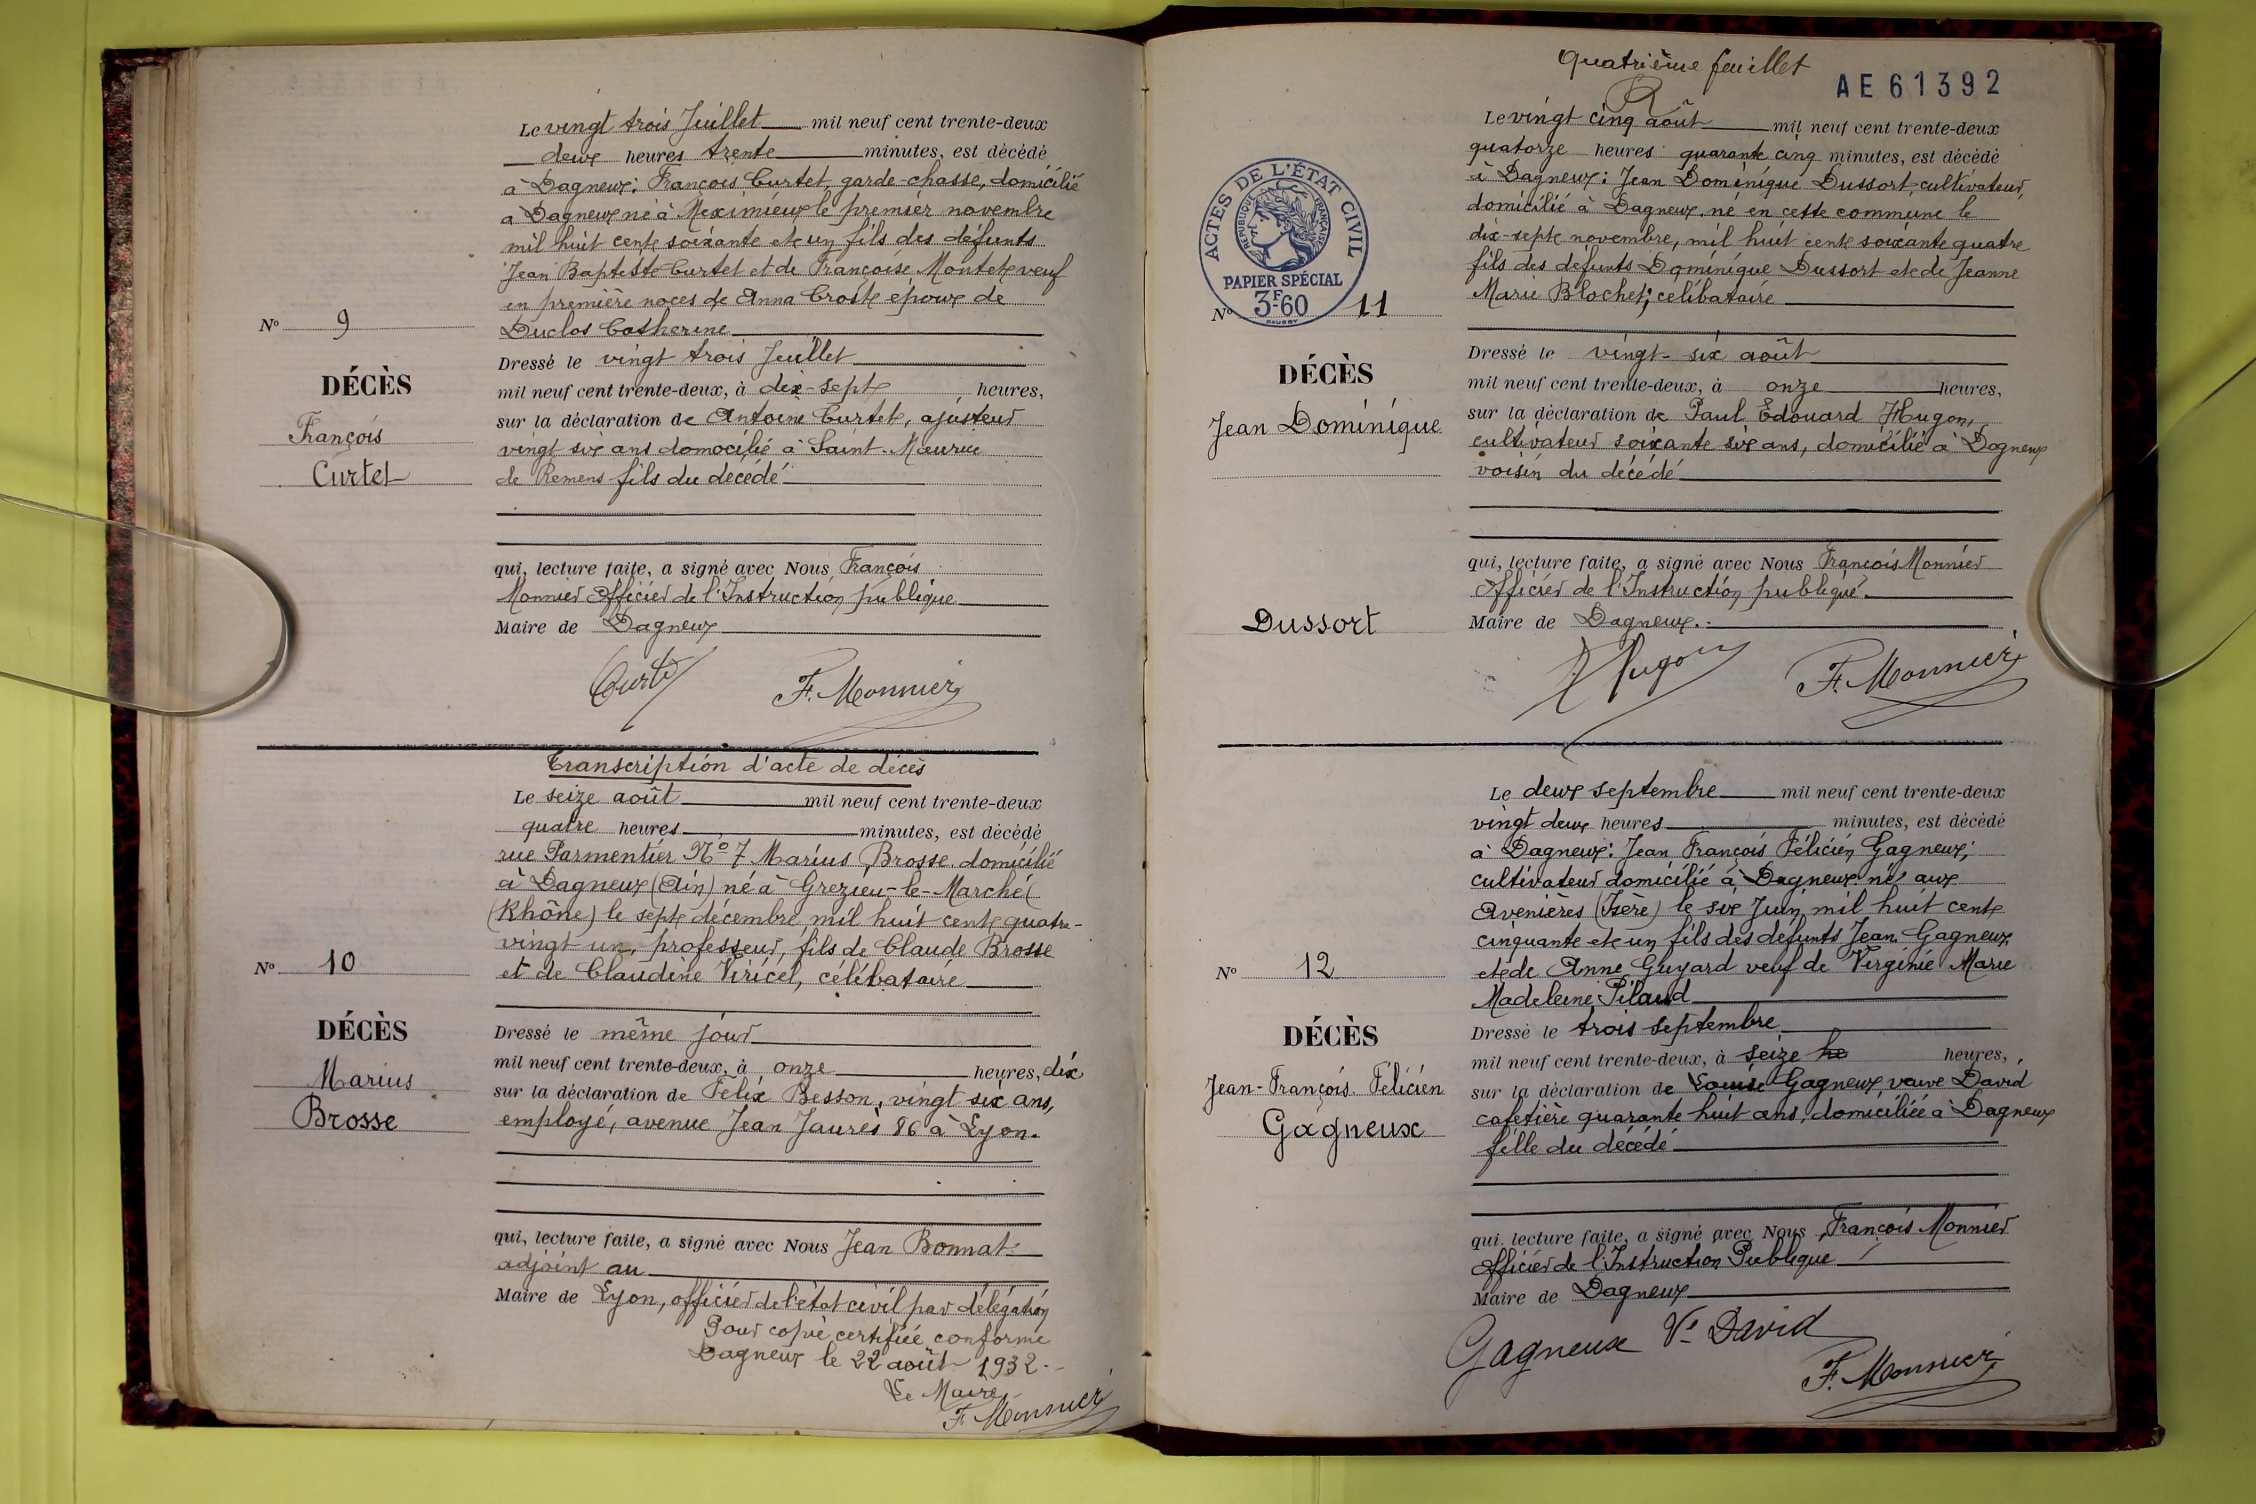 Le vingt trois Juillet mil neuf cent trente-deux
deux heures trente minutes, est décédé
à Dagneux: François Curtet, garde-chasse, domicilié
à Dagneux né à Meximieux le premier novembre
mil huit cent soixante et un fils des défunts
Jean Baptiste Curtet et de Françoise Montet veuf
en première noces de Anna Crost époux de
Duclos Catherine
Nº 9
DÉCÈS
François
Curtet
Dressé le vingt trois Juillet
mil neuf cent trente-deux, à dix-sept heures,
sur la déclaration de Antoine Curtet, ajusteur
vingt six ans domocilié à Saint-Maurice
de Remens fils du décédé
qui, lecture faite, a signé avec Nous François
Monnier Officier de l'Instruction publique
Maire de Dagneux
Curtet F. Monnier
Transcription d'acte de décès
Le seize août mil neuf cent trente-deux
quatre heures minutes, est décédé
rue Parmentier Nº 7 Marius Brosse domicilié
à Dagneux (Ain) né à Grezieu-le-Marché (
(Rhône) le sept décembre mil huit cent quatre-
vingt un, professeur, fils de Claude Brosse
et de Claudine Viricel, célibataire
Nº 10
DÉCÈS
Marius
Brosse
Dressé le même jour
mil neuf cent trente-deux, à onze heures, dix
sur la déclaration de Félix Besson, vingt six ans,
employé, avenue Jean Jaurès 86 à Lyon.
qui, lecture faite, a signé avec Nous Jean Bonnat
adjoint au
Maire de Lyon, officier de l'état civil par délégation
Pour copie certifiée conforme
Dagneux le 22 août 1932
Le Maire
F. Monnier
Quatrième feuillet
AE 61392
Le vingt cinq août mil neuf cent trente-deux
quatorze heures quarante cinq minutes, est décédé
à Dagneux: Jean Dominique Dussort, cultivateur,
domicilié à Dagneux, né en cette commune le
dix-sept novembre, mil huit cent soixante quatre
fils des défunts Dominique Dussort et de Jeanne
Marie Blochet; célibataire
ACTES DE L'ÉTAT CIVIL
RÉPUBLIQUE FRANÇAISE
PAPIER SPÉCIAL
3F-60
Nº 11
DÉCÈS
Jean Dominique
Dussort
Dressé le vingt-six août
mil neuf cent trente-deux, à onze heures,
sur la déclaration de Paul Edouard Hugon,
cultivateur soixante six ans, domicilié à Dagneux
voisin du décédé
qui, lecture faite, a signé avec Nous François Monnier
Officier de l'Instruction publique
Maire de Dagneux.
Hugon F. Monnier
Le deux septembre mil neuf cent trente-deux
vingt deux heures minutes, est décédé
à Dagneux: Jean François Félicien Gagneux,
cultivateur domicilié à Dagneux né aux
Avenières (Isère) le six Juin mil huit cent
cinquante et un fils des défunts Jean Gagneux
et de Anne Guyard veuf de Virginie Marie
Madeleine Pilaud
Nº 12
DÉCÈS
Jean-François Félicien
Gagneux
Dressé le trois septembre
mil neuf cent trente-deux, à seize he heures,
sur la déclaration de Louise Gagneux veuve David
cafetière quarante huit ans, domiciliée à Dagneux
fille du décédé
qui, lecture faite, a signé avec Nous François Monnier
Officier de l'Instruction Publique
Maire de Dagneux
Gagneux Ve David
F. Monnier